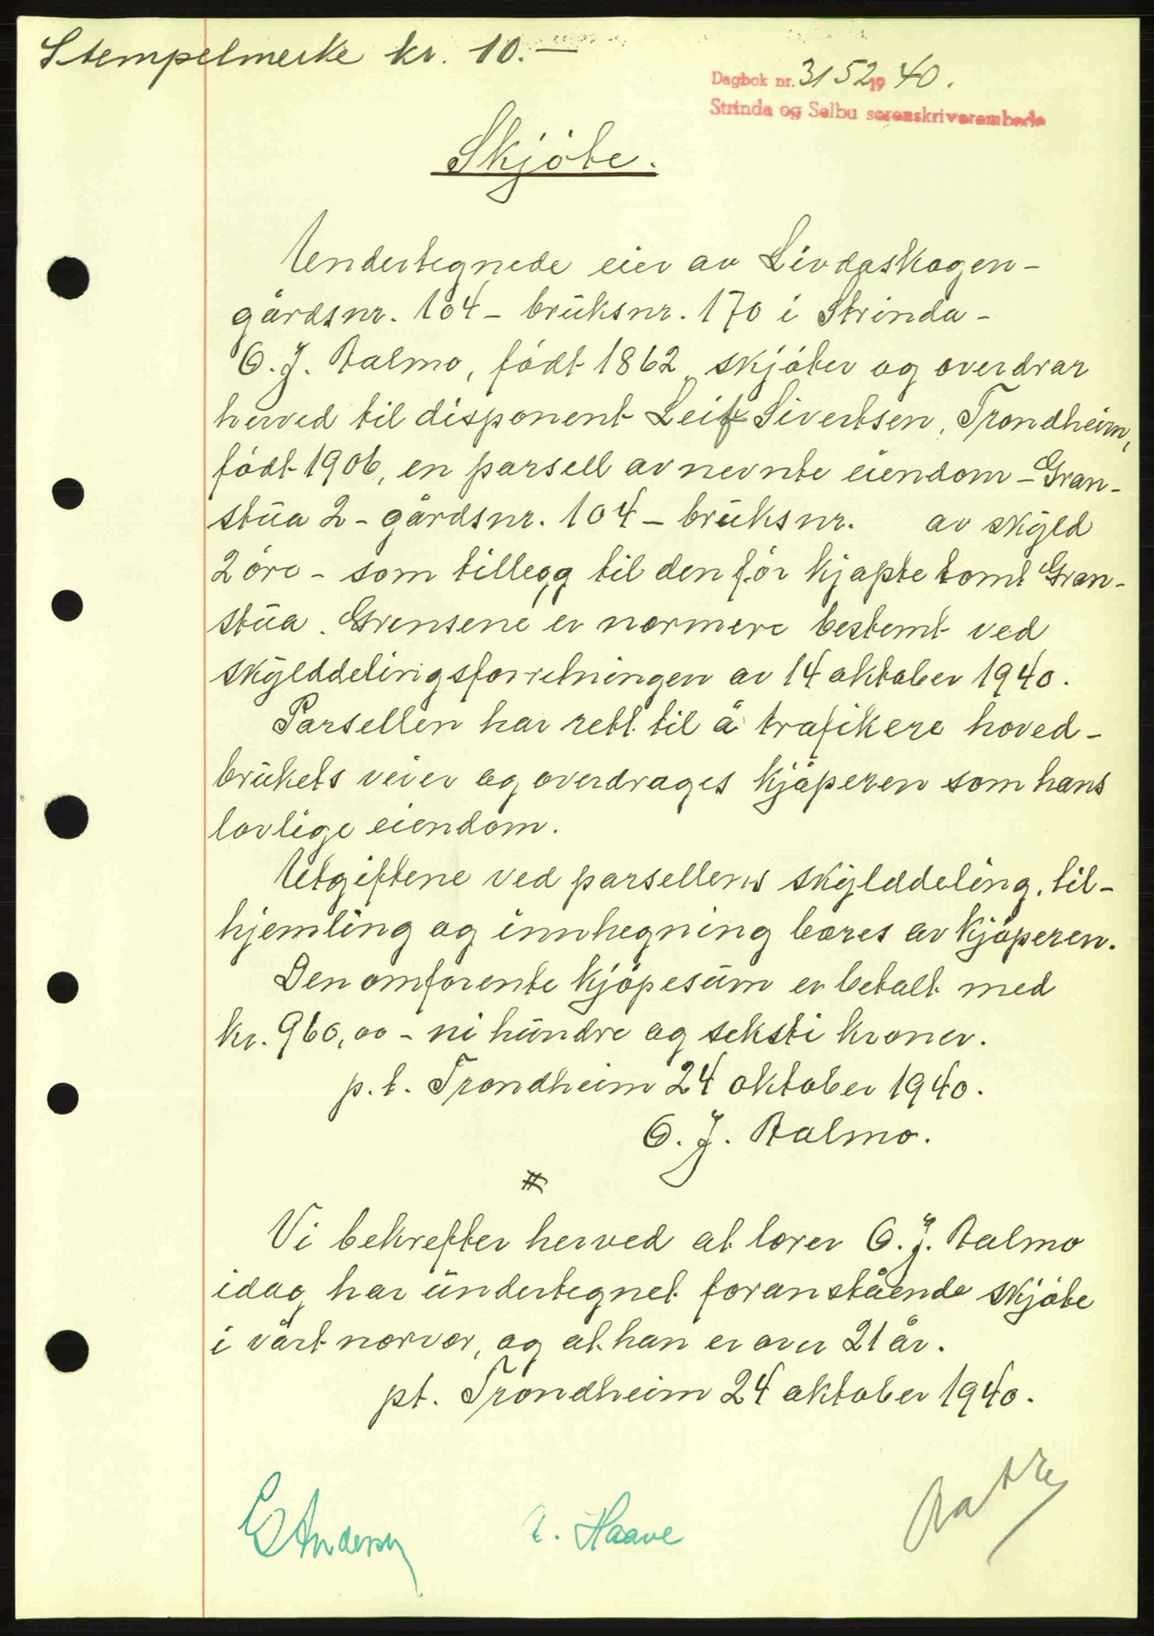 Stempelmerke kr. 10.—
Dagbok nr. 3152 19 40.
Strinda og Selbu sorenskriverembede
Skjöte.
Undertegnede eier av Lirdaskogen –
gårdsnr. 104 – bruksnr. 170 i Strinda –
O. J. Aalmo, födt 1862, skjöter og overdrar
herved til disponent Leif Sivertsen, Trondheim,
födt 1906, en parsell av nevnte eiendom – Gran-
stua 2 – gårdsnr. 104 – bruksnr.    av skyld
2 öre – som tillegg til den för kjöpte tomt Gran-
stua. Grensene er nærmere bestemt ved
skylddelingsforretningen av 14 oktober 1940.
Parsellen har rett til å trafikere hoved-
brukets veier og overdrages kjöperen som hans
lovlige eiendom.
Utgiftene ved parsellens skylddeling, til-
hjemling og innhegning bæres av kjöperen.
Den omforente kjöpesum er betalt med
kr. 960,00 – ni hundre og seksti kroner.
p.t. Trondheim 24 oktober 1940.
O. J. Aalmo.
#
Vi bekrefter herved at lærer O. J. Aalmo
idag har undertegnet foranstående skjöte
i vårt nærvær, og at han er over 21 år.
pt. Trondheim 24 oktober 1940.
E Andersen
Haave